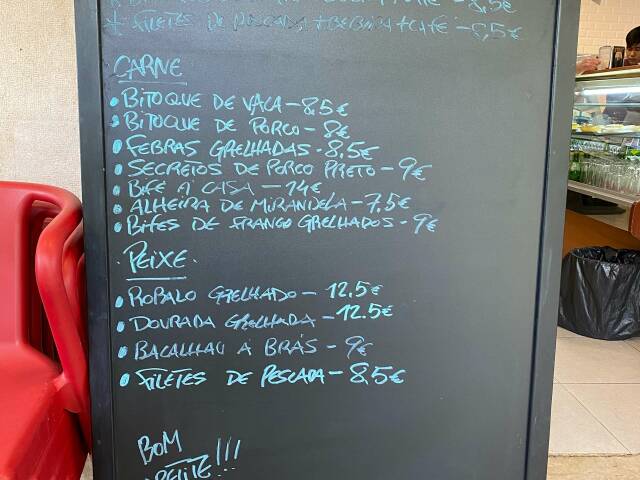 * FILETES DE PESCADA + BEBIDA + CAFÉ - 8,5€
CARNE
• BITOQUE DE VACA - 8,5€
• BITOQUE DE PORCO - 8€
• FEBRAS GRELHADAS - 8,5€
• SECRETOS DE PORCO PRETO - 9€
• BIFE À CASA - 14€
• ALHEIRA DE MIRANDELA - 7,5€
• BIFES DE FRANGO GRELHADOS - 9€
PEIXE
• ROBALO GRELHADO - 12.5€
• DOURADA GRELHADA - 12.5€
• BACALHAU À BRÁS - 9€
• FILETES DE PESCADA - 8,5€
BOM